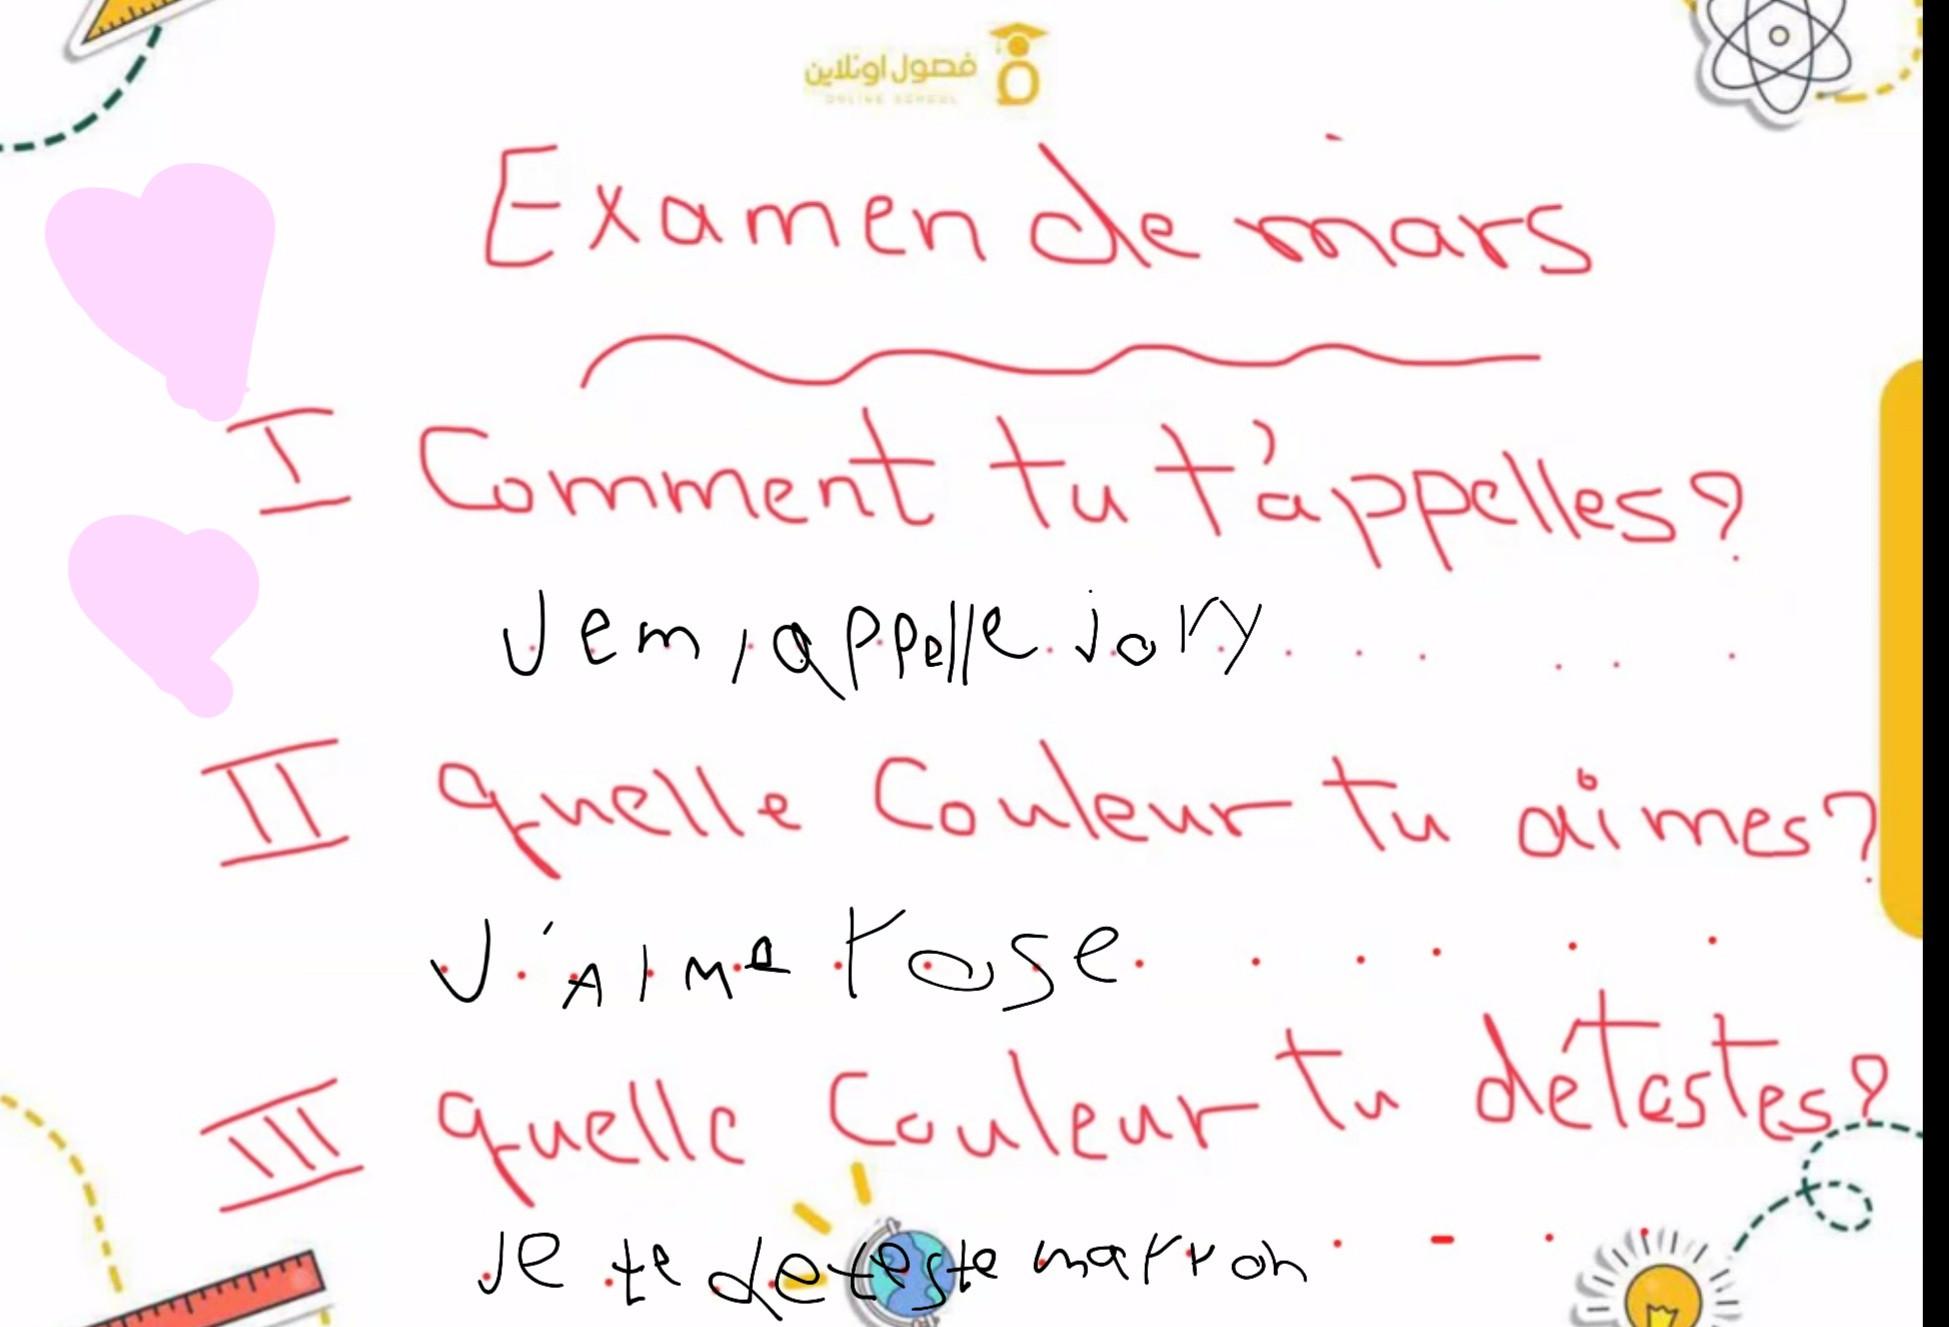 فصول اونلاين
ONLINE SCHOOL
Examen de mars
I Comment tu t'appelles?
Jem,appelle jory
II quelle Couleur tu aimes?
J'aime rose
III quelle Couleur tu détestes?
Je te deteste marron